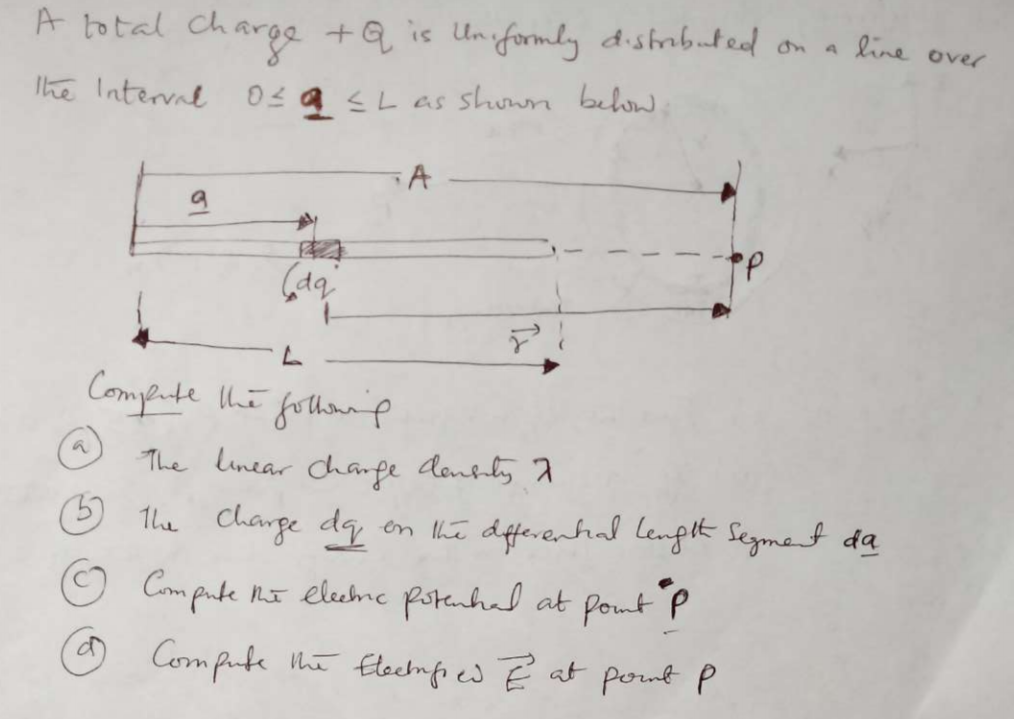 A total charge +Q is Uniformly distributed on a line over
the Interval 0 ≤ a ≤ L as shown below.
A
a
P
dq
r⃗
L
Compute the following
(a) The linear charge density λ
(b) The charge dq on the differential length segment da
(c) Compute the electric potential at point P
(d) Compute the E⃗ at point P